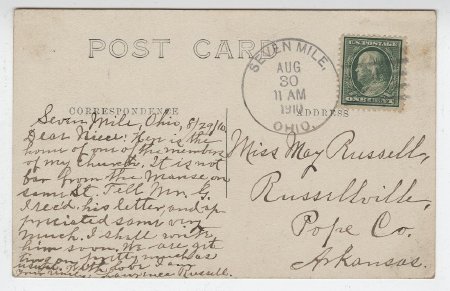 POST CARD
SEVEN MILE,
AUG
30
11 AM
1910
OHIO.
U.S. POSTAGE
CORRESPONDENCE
ADDRESS
Seven Mile, Ohio, 8/29/10
Dear Niece: Here is the
home of one of the members
of my Church. It is not
far from the Manse, on
same St. Tell Mr. G.
I recd. his letter, and ap-
preciated same very
much. I shall write
him soon. We are get
ting on pretty much as
usual. With love I am
Your Uncle, Lawrence Russell.
Miss May Russell,
Russellville,
Pope Co.
Arkansas.